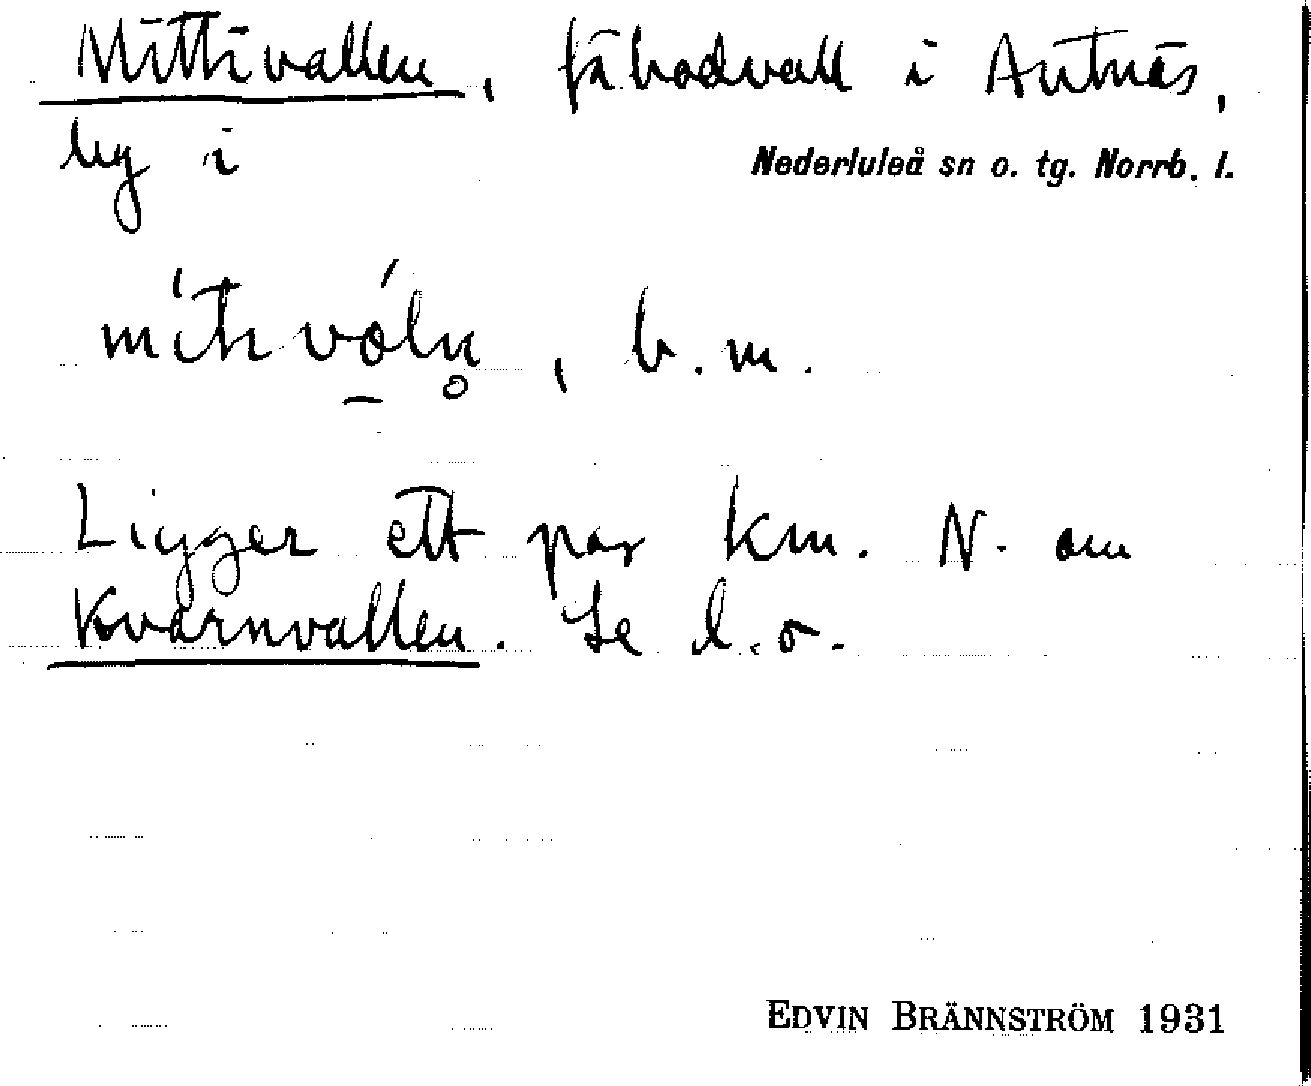 Mittivallen, fäbodvall i Antnäs,
by i Nederluleå sn o. tg. Norrb. l.
, b.m.
Ligger ett par km. N. om
Kvarnvallen. Se d.o.
EDVIN BRÄNNSTRÖM 1931